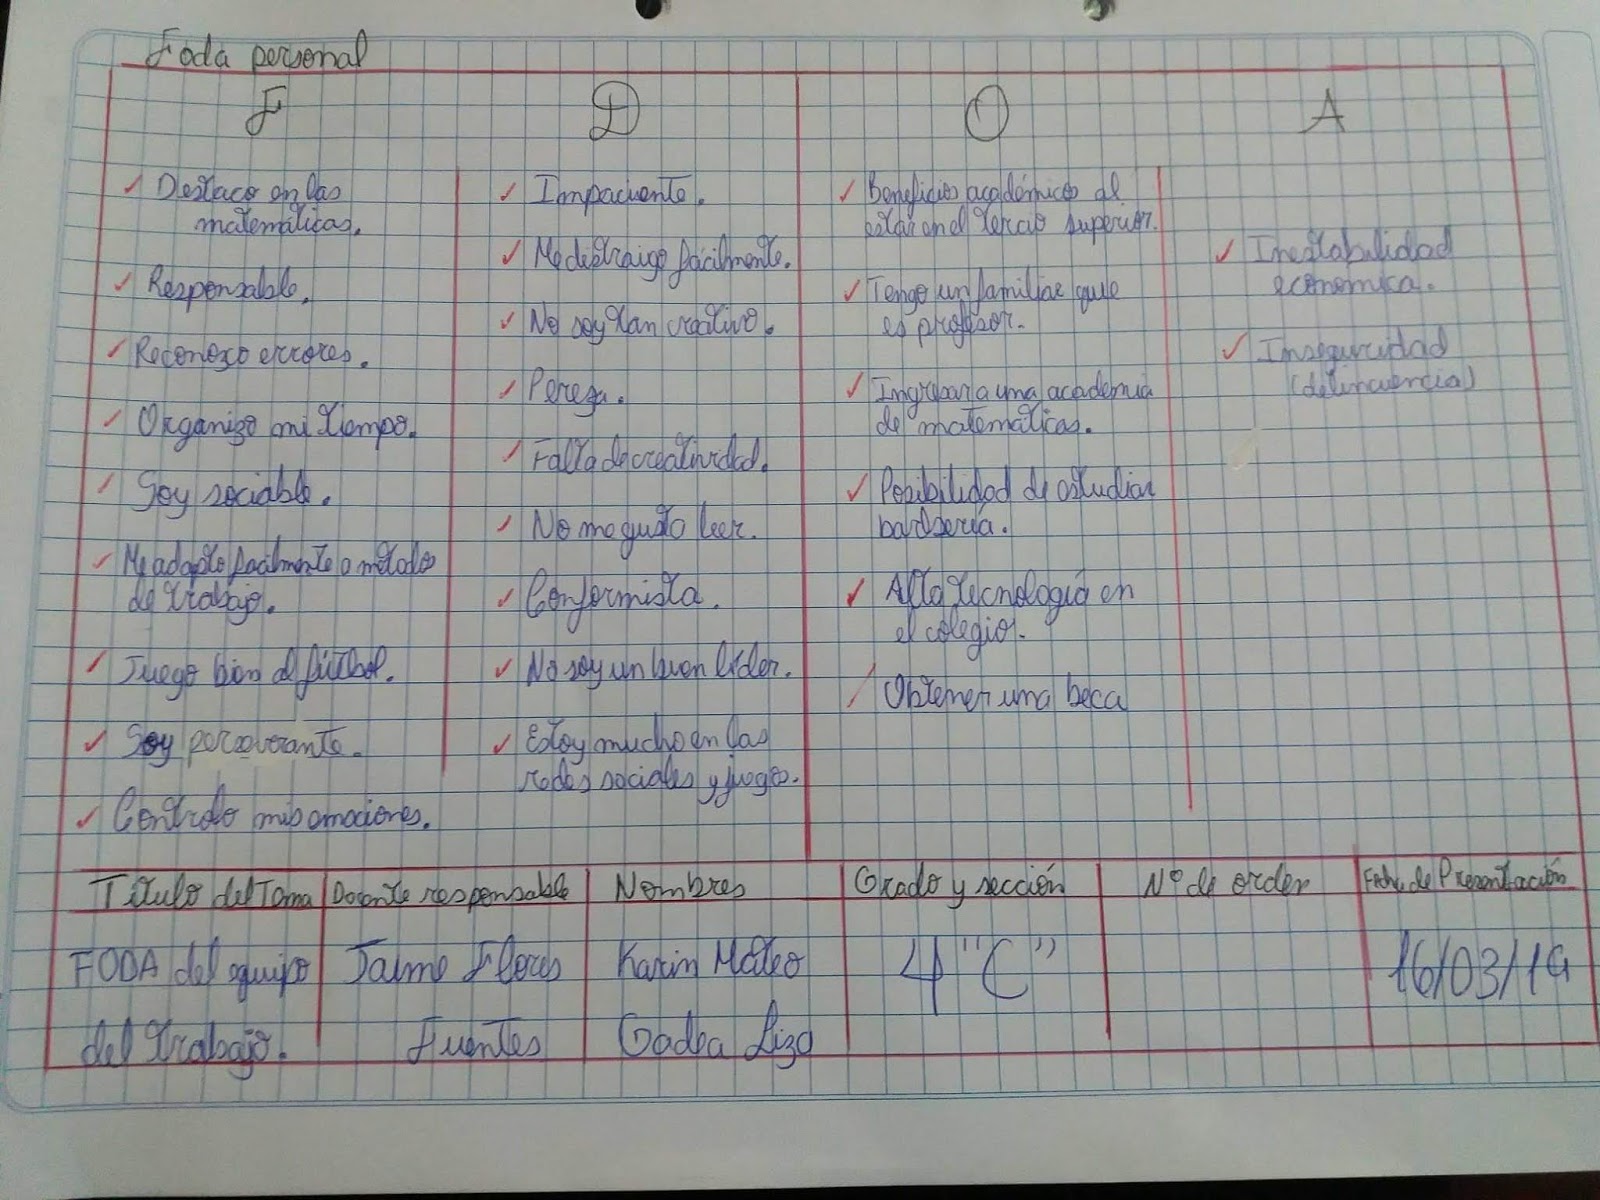 Foda personal
F
D
O
A
Destaco en las
matemáticas.
Responsable.
Reconozco errores.
Organizo mi tiempo.
Soy sociable.
Me adapto facilmente a métodos
de trabajo.
Juego bien el fútbol.
Soy perseverante.
Controlo mis emociones.
Impaciente.
Me distraigo fácilmente.
No soy tan creativo.
Pereza.
Falta de creatividad.
No me gusta leer.
Conformista.
No soy un buen líder.
Estoy mucho en las
redes sociales y juegos.
Beneficios académicos al
estar en el tercio superior.
Tengo un familiar que
es profesor.
Ingresar a una academia
de matemáticas.
Posibilidad de estudiar
barbería.
Alta tecnología en
el colegio.
Obtener una beca
Inestabilidad
economica.
Inseguridad
(delincuencia)
Titulo del Tema Docente responsable Nombres Grado y sección N° de orden Fecha de Presentación
FODA del equipo Jaime Flores Karin Mateo 4 "C" 16/03/19
del trabajo. Fuentes Gadea Lizo